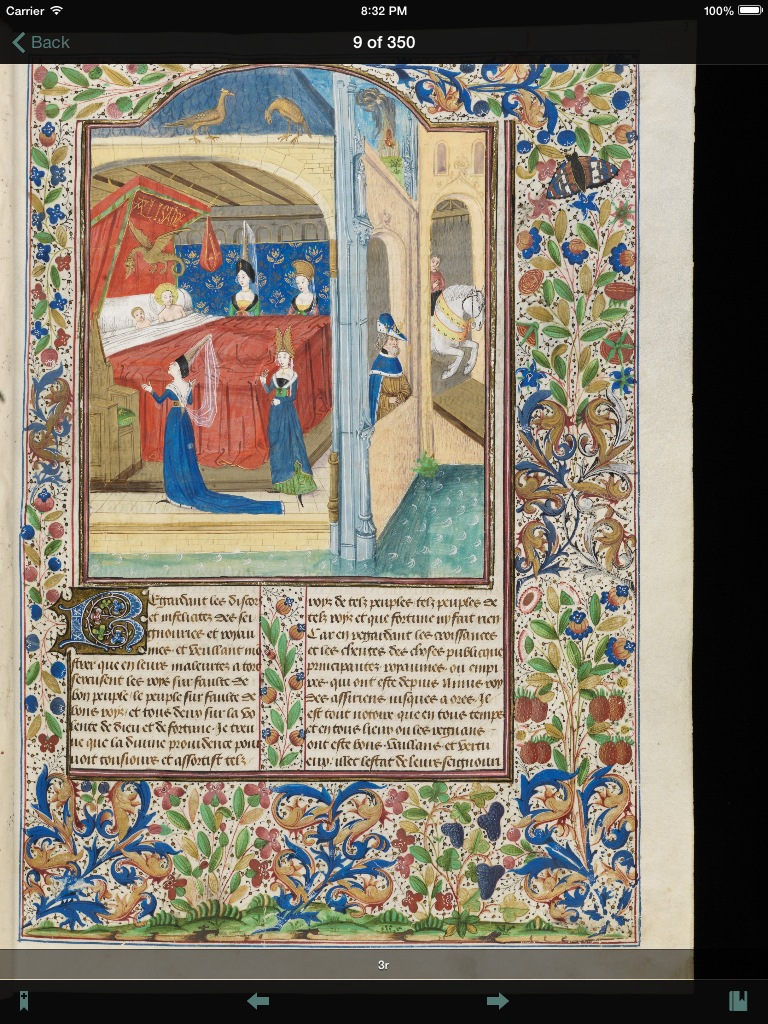 Carrier 8:32 PM 100%
Back 9 of 350
Regardant les discor
et meschiefz des sei
gnouries et royau
mes et veullant mo
strer que en leurs maleurtes a tort
sexcusent les roys sur faulte de
bon peuple le peuple sur faulte de
bons roys et tous deux sur la vo
lente de dieu et de fortune Je treu
ue que la diuine prouidence pour
uoit tousiours et assortist telz
roys de telz peuples telz peuples de
telz roys et que fortune ny fait rien
Car en regardant les croissances
et les cheutes des choses publicque
principautez royaumes ou empi
res qui ont este depuis ninus roy
des assiriens iusques a ores Il
est tout notoire que en tous temps
et en tous lieux ou les regnans
ont este bons vaillans et vertu
eux illec lestat de leurs seignouri
3r